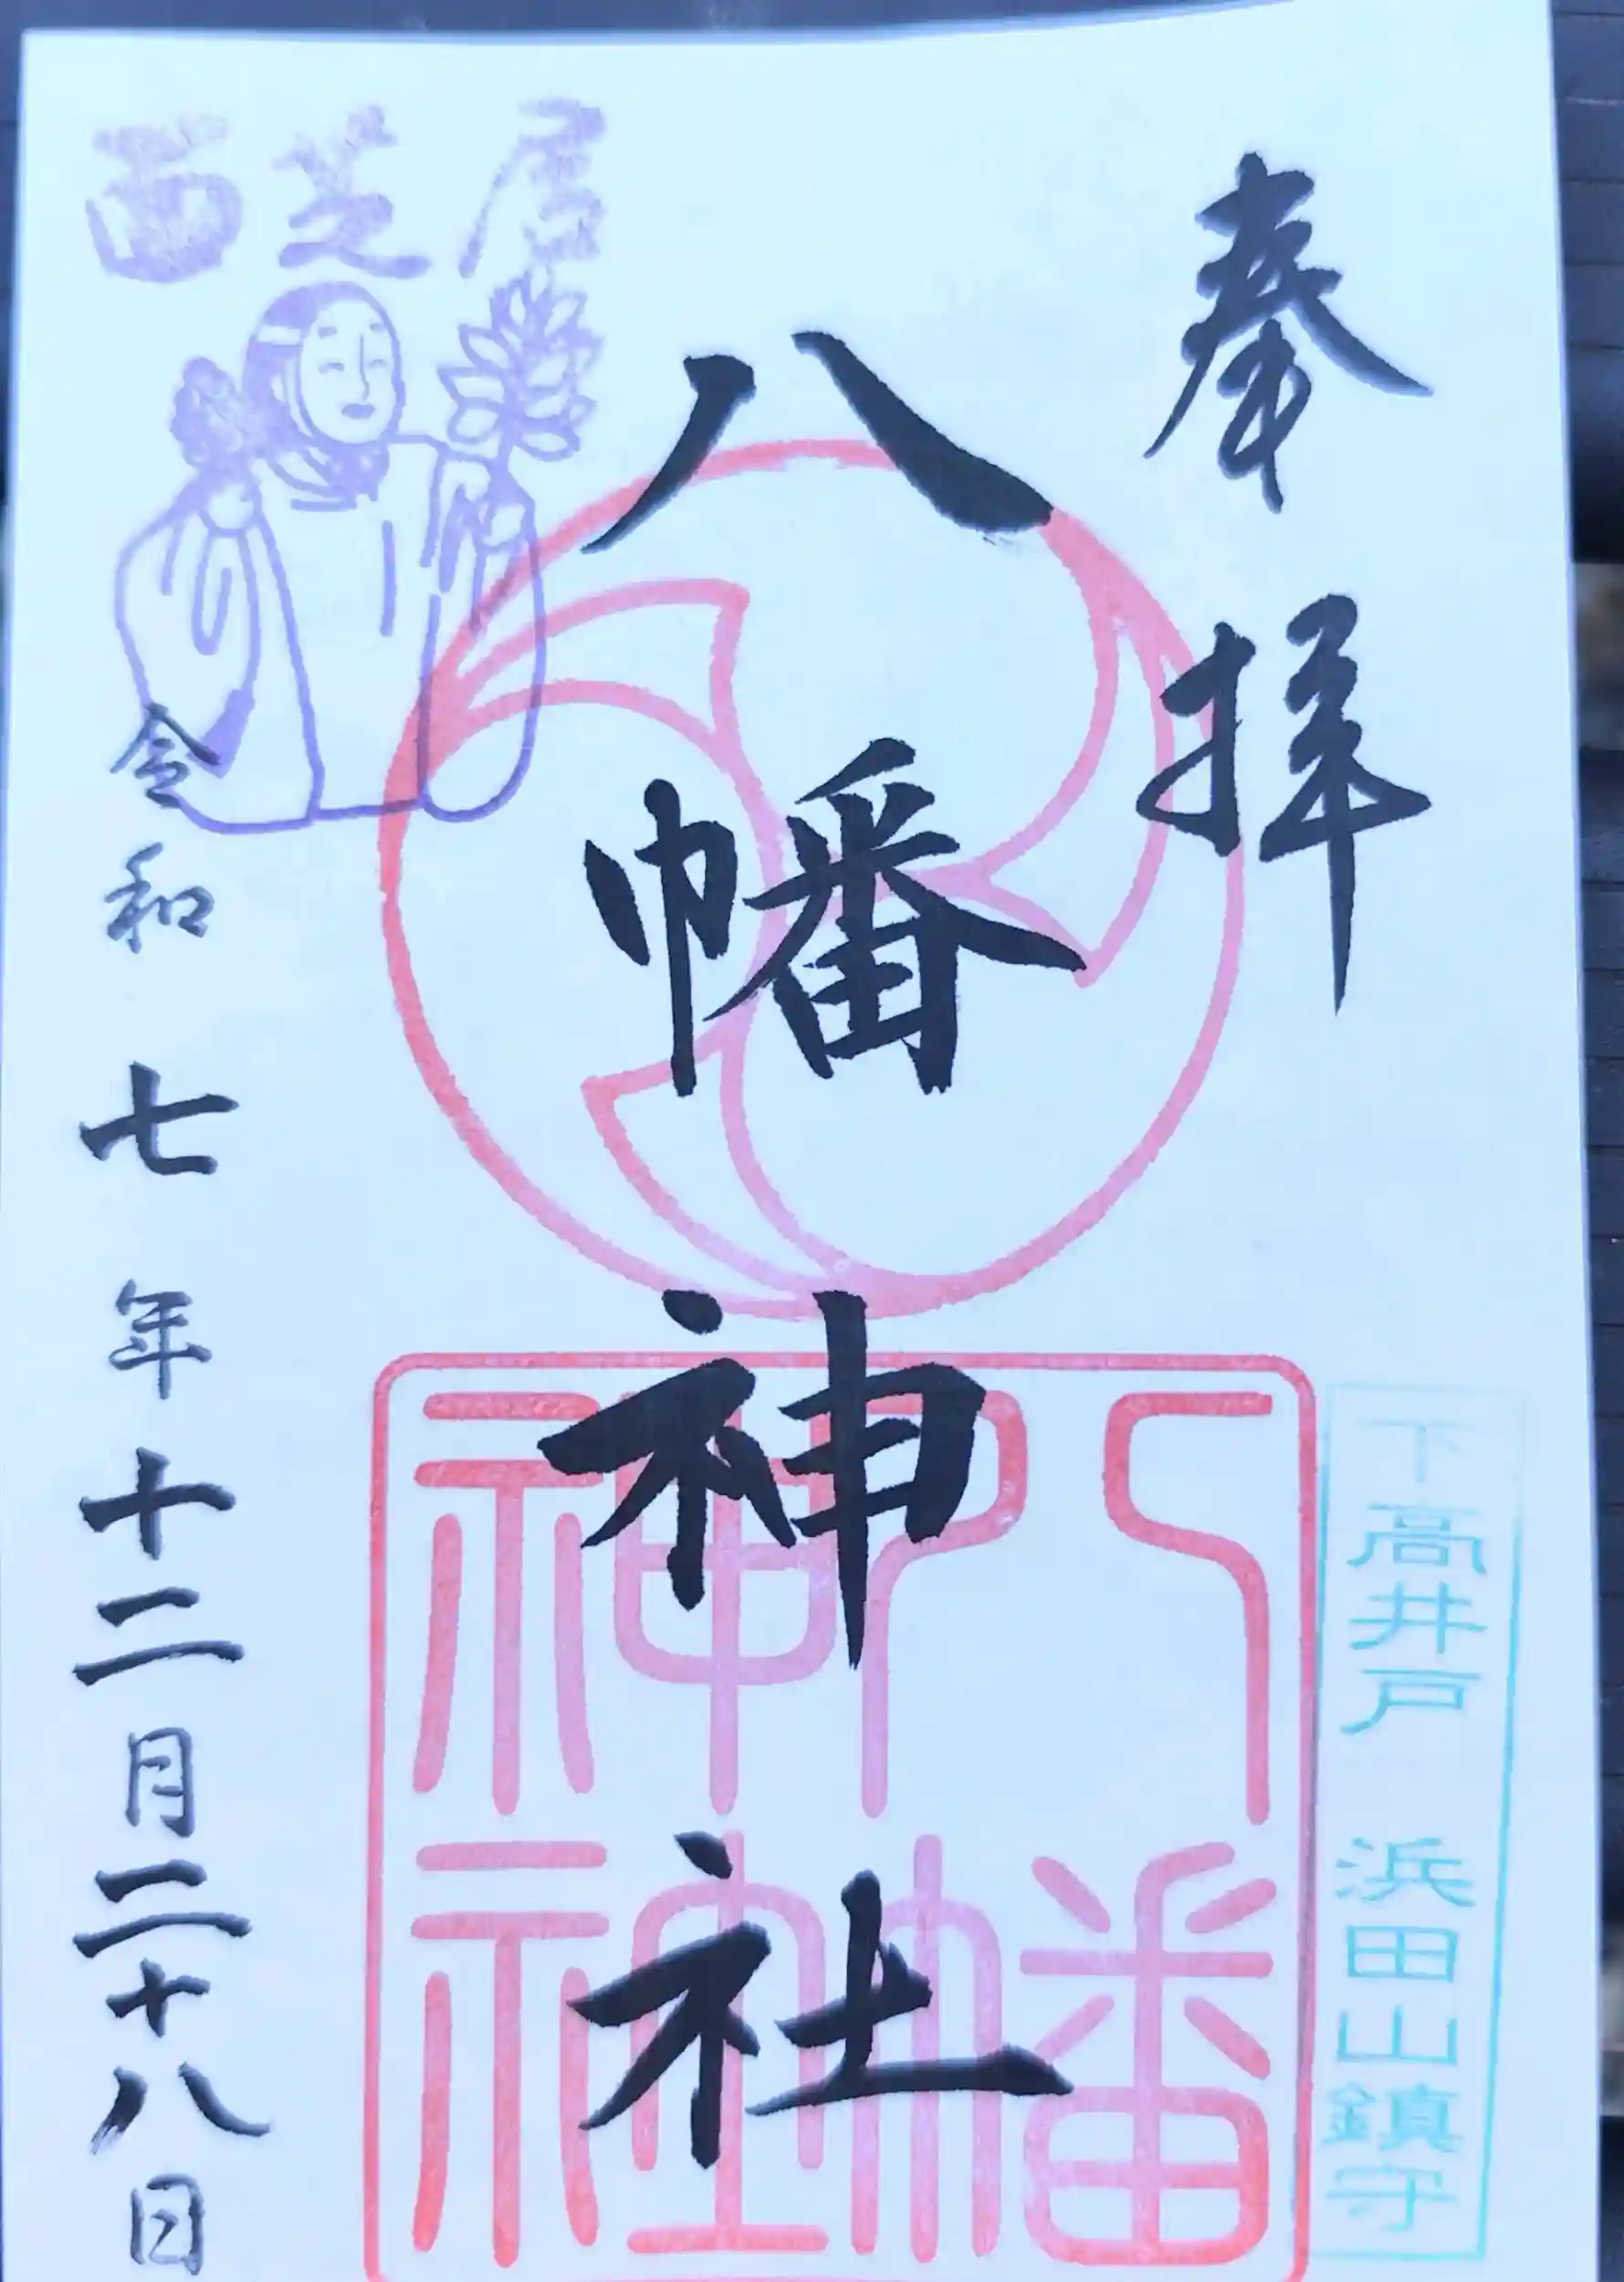 奉拝
下高井戸 浜田山鎮守
八幡神社
八幡神社
面芝居
令和七年十二月二十八日